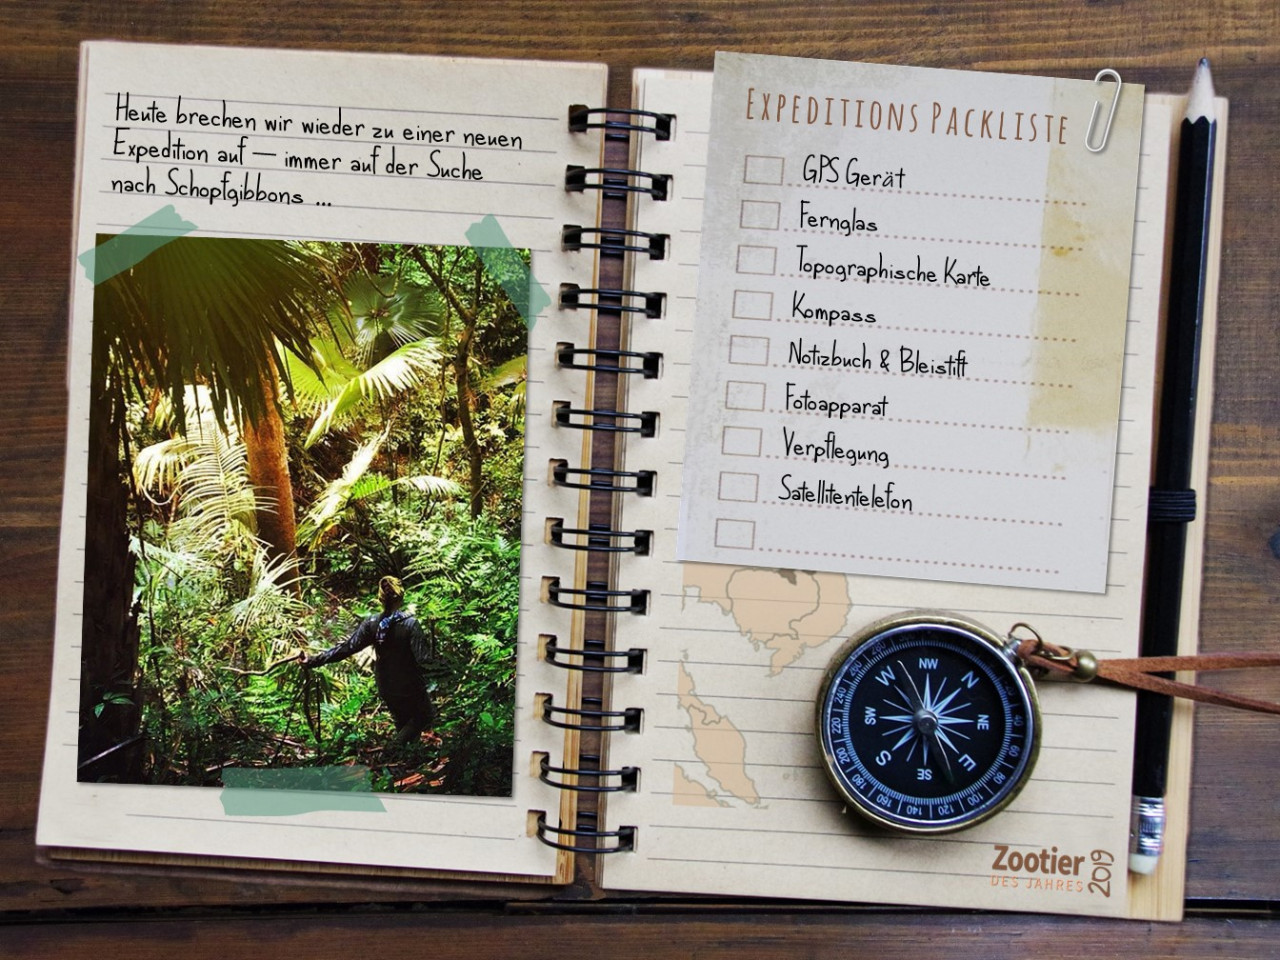 Heute brechen wir wieder zu einer neuen
Expedition auf — immer auf der Suche
nach Schopfgibbons ...
EXPEDITIONS PACKLISTE
GPS Gerät
Fernglas
Topographische Karte
Kompass
Notizbuch & Bleistift
Fotoapparat
Verpflegung
Satellitentelefon
NW
N
NE
E
SE
S
SW
W
Zootier
DES JAHRES
2019